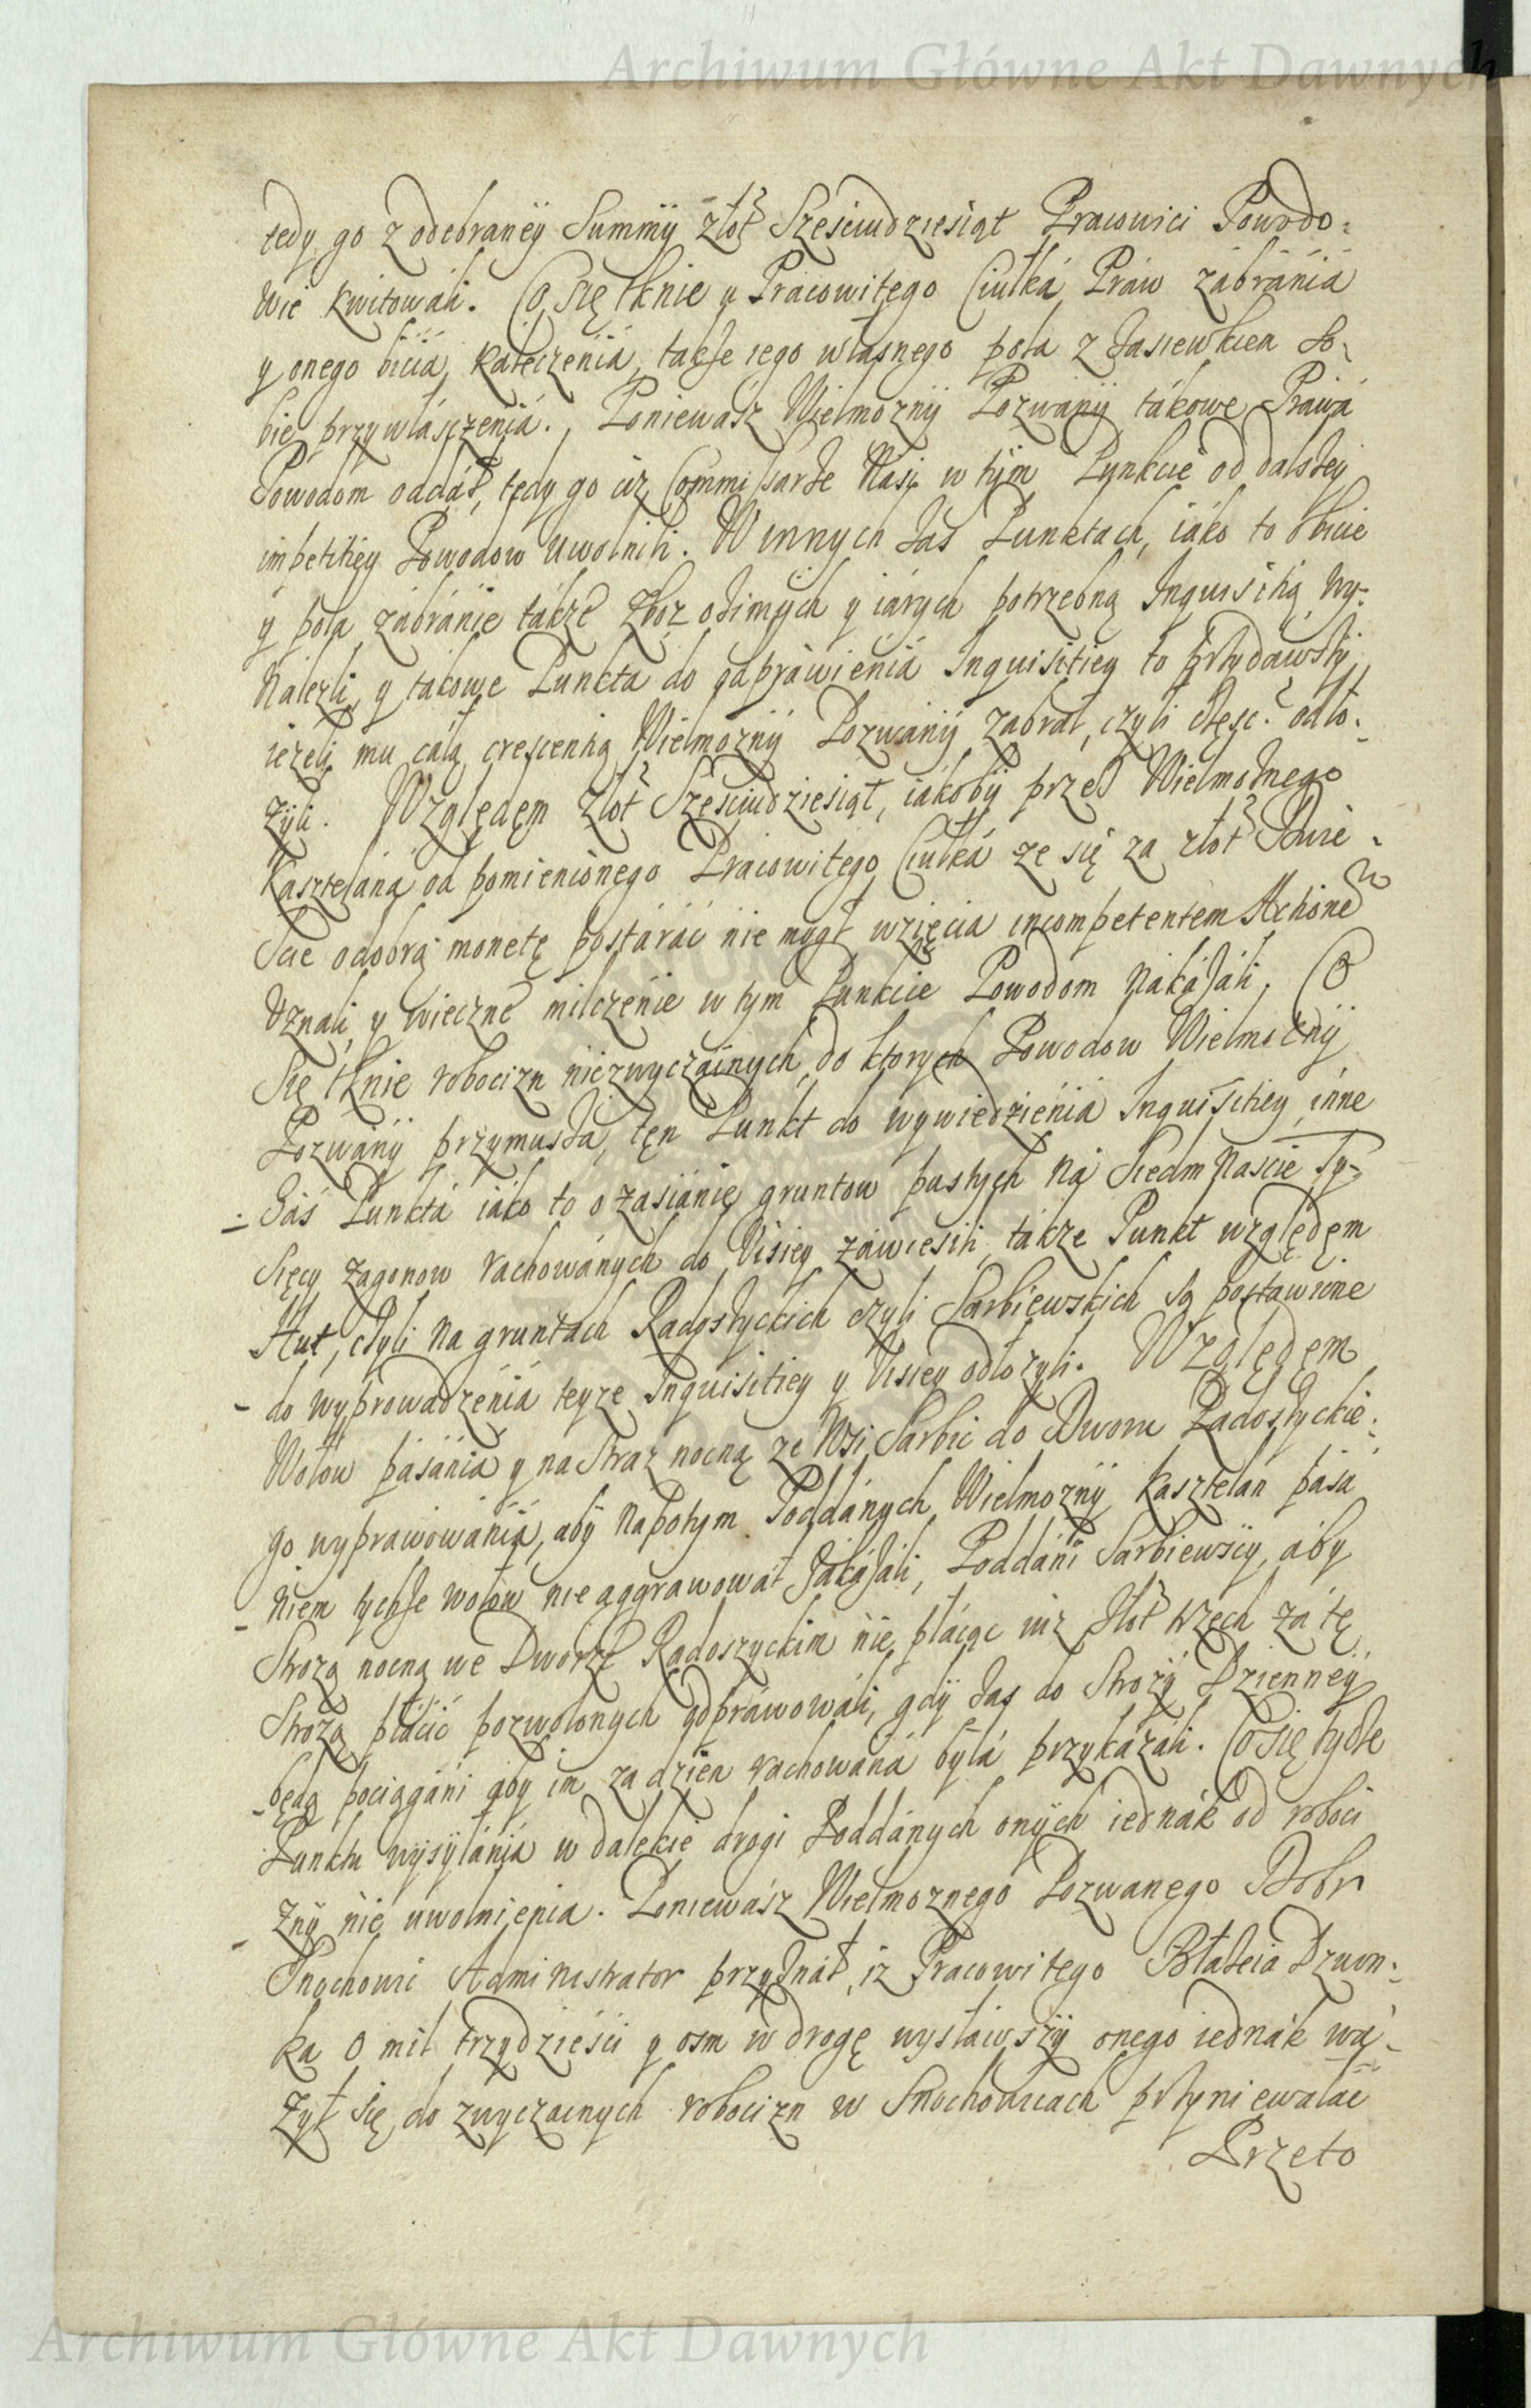 Archiwum Główne Akt Dawnych
tedy go z odebraney Summy złot Sześciudziesiąt Pracowici Powodo:
wie kwitowali. Co się tknie u Pracowitego Ciułka Praw zábránia
y onego bicia, kaleczenia, także iego własnego pola z Zasiewkiem So:
bie przywłaszczenia. Poniewasz Wielmożny Pozwany tákowe Práwa
Powodom oddał, tedy go iuż Commissarze Nasi w tym Punkcie od dalszey
impetitiey Powodow uwolnili. W innych zaś Punktach, iáko to obicie
y pola zábránie także Zboz ozimych y iárych potrzebną Inquisitią wy-
naleźli, y takowe Punkta do odpráwienia Inquisitiey to przydawszy
ieżeli mu całą crescentią Wielmożny Pozwany zabrał, czyli część. odło-
żyli. Względem złot Sześciudziesiąt, iákoby przez Wielmożnego
Kasztelana od pomienionego Pracowitego Ciułká ze się za złot Dwie-
scie o dobrą monetę postáráć nie mogł wzięcia incompetentem Actione
Uznali, y wieczne milczenie w tym Punkcie Powodom nakázáli. Co
Się tknie robocizn niezwyczáinych, do ktorych Powodow Wielmożny
Pozwany przymusza, ten Punkt do wywiedzienia Inquisitiey, inne
Záś Punktá iáko to o zasianie gruntow pustych ná Siedmnaście Ty-
Sięcy zagonow ráchowánych do Visiey záwiesili, tákże Punkt względem
Hut, czyli na gruntach Radoszyckich czyli Sarbiewskich są postawione
do wyprowadzenia teyże Inquisitiey y Visiey odłożyli. Względem
Wołow pásánia y na Straż nocną ze Wsi Sarbic do Dworu Radoszyckie:
go wyprawowánia, aby napotym Poddánych Wielmożny Kasztelan pása
niem tychże wołow nie aggrawował Zakázáli, Poddáni Sarbiewscy, áby
Strożą nocną we Dworze Radoszyckim nie płácąc iuż złot trzech zá tę
Strożą płácić pozwolonych odpráwowáli, gdy zaś do Stroży Dzienney
będą pociągáni aby im za dzien rachowána byłá przykázáli. Co się tycze
Punktu wysyłánia w dalekie drogi Poddánych onych iednák od roboci
zny nie uwolnienia. Poniewász Wielmożnego Pozwanego Dobr
Snochowic Administrator przyznáł, iż Pracowitego Błażeia Dzwon:
ka o mil trzydzieści y osm w drogę wysławszy onego iednák wá-
żył się do zwyczaynych robocizn w Snochowicach przyniewalać
Przeto
Archiwum Główne Akt Dawnych